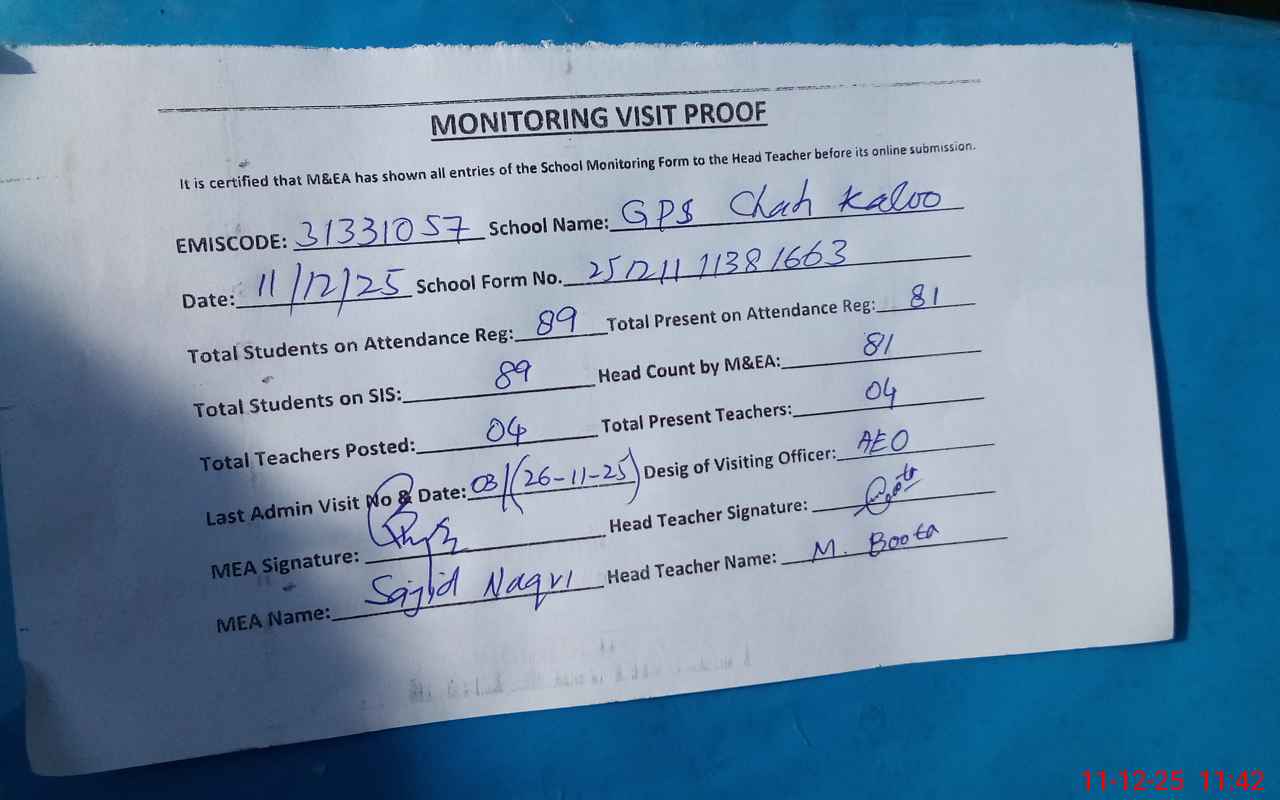 MONITORING VISIT PROOF
It is certified that M&EA has shown all entries of the School Monitoring Form to the Head Teacher before its online submission.
EMISCODE: 31331057 School Name: GPS Chah Kaloo
Date: 11/12/25 School Form No. 251211 11381663
Total Students on Attendance Reg: 89 Total Present on Attendance Reg: 81
Total Students on SIS: 89 Head Count by M&EA: 81
Total Teachers Posted: 04 Total Present Teachers: 04
Last Admin Visit No & Date: 03/(26-11-25) Desig of Visiting Officer: AEO
MEA Signature: Head Teacher Signature:
MEA Name: Sajjid Naqvi Head Teacher Name: M. Boota
11-12-25 11:42